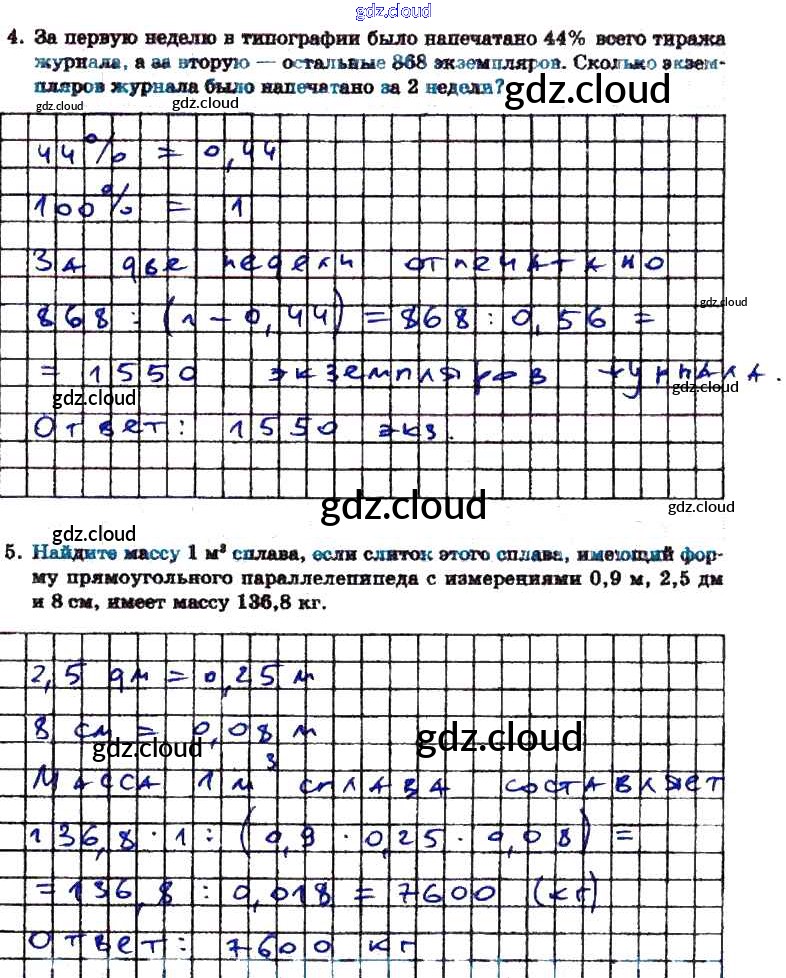 gdz.cloud
4. За первую неделю в типографии было напечатано 44% всего тиража
журнала, а за вторую — остальные 868 экземпляров. Сколько экзем-
пляров журнала было напечатано за 2 недели?
gdz.cloud
gdz.cloud
gdz.cloud
44% = 0,44
100% = 1
За две недели отпечатано
gdz.cloud
868 : (1 - 0,44) = 868 : 0,56 =
= 1550 экземпляров журнала.
gdz.cloud
gdz.cloud
Ответ: 1550 экз.
gdz.cloud
gdz.cloud
gdz.cloud
5. Найдите массу 1 м³ сплава, если слиток этого сплава, имеющий фор-
му прямоугольного параллелепипеда с измерениями 0,9 м, 2,5 дм
и 8 см, имеет массу 136,8 кг.
2,5 дм = 0,25 м
8 см = 0,08 м
gdz.cloud
gdz.cloud
Масса 1 м³ сплава составляет
136,8 · 1 : (0,9 · 0,25 · 0,08) =
= 136,8 : 0,018 = 7600 (кг)
Ответ: 7600 кг